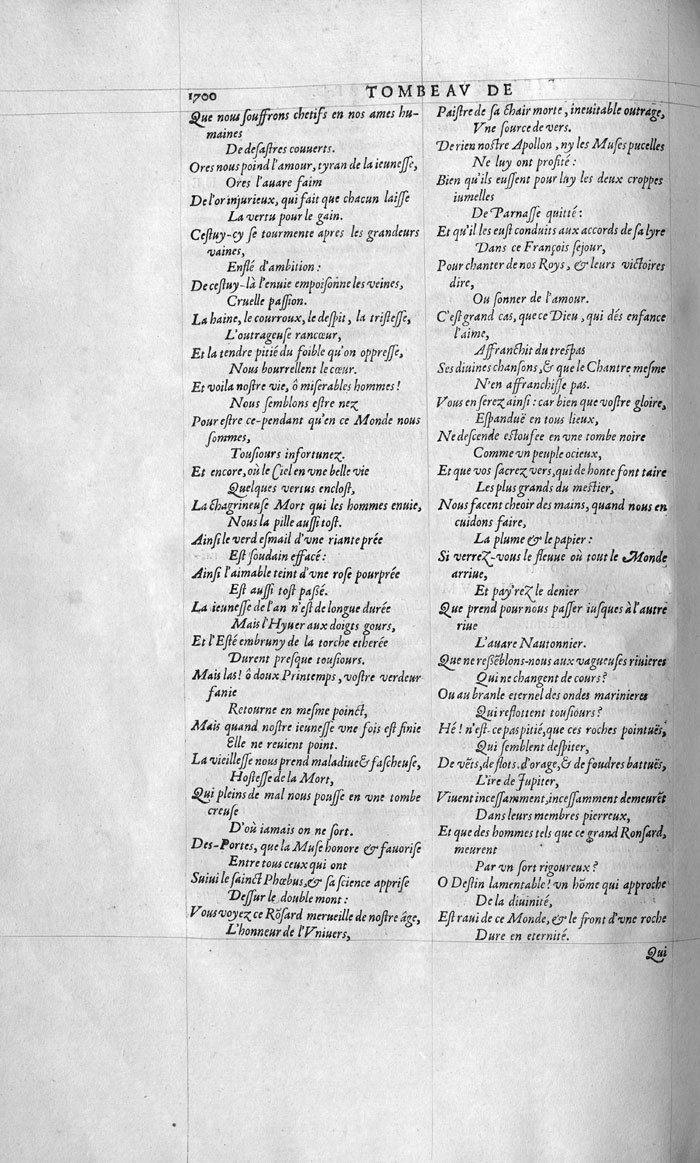 1700
TOMBEAV DE
Que nous ſouffrons chetifs en nos ames hu-
maines
De deſaſtres couuerts.
Ores nous poind l'amour, tyran de la ieuneſſe,
Ores l'auare faim
De l'or injurieux, qui fait que chacun laiſſe
La vertu pour le gain.
Ceſtuy-cy ſe tourmente apres les grandeurs
vaines,
Enflé d'ambition:
De ceſtuy-là l'enuie empoiſonne les veines,
Cruelle paſſion.
La haine, le courroux, le deſpit, la triſteſſe,
L'outrageuſe rancœur,
Et la tendre pitié du foible qu'on oppreſſe,
Nous bourrellent le cœur.
Et voila noſtre vie, ô miſerables hommes!
Nous ſemblons eſtre nez
Pour eſtre ce-pendant qu'en ce Monde nous
ſommes,
Touſiours infortunez.
Et encore, où le Ciel en vne belle vie
Quelques vertus encloſt,
La chagrineuſe Mort qui les hommes enuie,
Nous la pille auſſi toſt.
Ainſi le verd eſmail d'vne riante prée
Eſt ſoudain effacé:
Ainſi l'aimable teint d'vne roſe pourprée
Eſt auſſi toſt paßé.
La ieuneſſe de l'an n'eſt de longue durée
Mais l'Hyuer aux doigts gours,
Et l'Eſté embruny de la torche etherée
Durent preſque touſiours.
Mais las! ô doux Printemps, voſtre verdeur
fanie
Retourne en meſme poinct,
Mais quand noſtre ieuneſſe vne fois eſt finie
Elle ne reuient point.
La vieilleſſe nous prend maladiue & faſcheuſe,
Hoſteſſe de la Mort,
Qui pleins de mal nous pouſſe en vne tombe
creuſe
D'où iamais on ne ſort.
Des-Portes, que la Muſe honore & fauoriſe
Entre tous ceux qui ont
Suiui le ſainct Phœbus, & ſa ſcience appriſe
Deſſur le double mont:
Vous voyez ce Rõſard merueille de noſtre âge,
L'honneur de l'Vniuers,
Paiſtre de ſa chair morte, ineuitable outrage,
Vne ſource de vers.
De rien noſtre Apollon, ny les Muſes pucelles
Ne luy ont profité:
Bien qu'ils euſſent pour luy les deux croppes
iumelles
De Parnaſſe quitté:
Et qu'il les euſt conduits aux accords de ſa lyre
Dans ce François ſejour,
Pour chanter de nos Roys, & leurs victoires
dire,
Ou ſonner de l'amour.
C'eſt grand cas, que ce Dieu, qui dés enfance
l'aime,
Affranchit du treſpas
Ses diuines chanſons, & que le Chantre meſme
N'en affranchiſſe pas.
Vous en ſerez ainſi: car bien que voſtre gloire,
Eſpanduë en tous lieux,
Ne deſcende eſtoufee en vne tombe noire
Comme vn peuple ocieux,
Et que vos ſacrez vers, qui de honte font taire
Les plus grands du meſtier,
Nous facent cheoir des mains, quand nous en
cuidons faire,
La plume & le papier:
Si verrez-vous le fleuue où tout le Monde
arriue,
Et pay'rez le denier
Que prend pour nous paſſer iuſques à l'autre
riue
L'auare Nautonnier.
Que ne reſſẽblons-nous aux vagueuſes riuieres
Qui ne changent de cours?
Ou au branle eternel des ondes marinieres
Qui reflottent touſiours?
Hé! n'eſt-ce pas pitié, que ces roches pointuës,
Qui ſemblent deſpiter,
De vẽts, de flots, d'orage, & de foudres battuës,
L'ire de Jupiter,
Viuent inceſſamment, inceſſamment demeurẽt
Dans leurs membres pierreux,
Et que des hommes tels que ce grand Ronſard,
meurent
Par vn ſort rigoureux?
O Deſtin lamentable! vn hõme qui approche
De la diuinité,
Eſt raui de ce Monde, & le front d'vne roche
Dure en eternité.
Qui